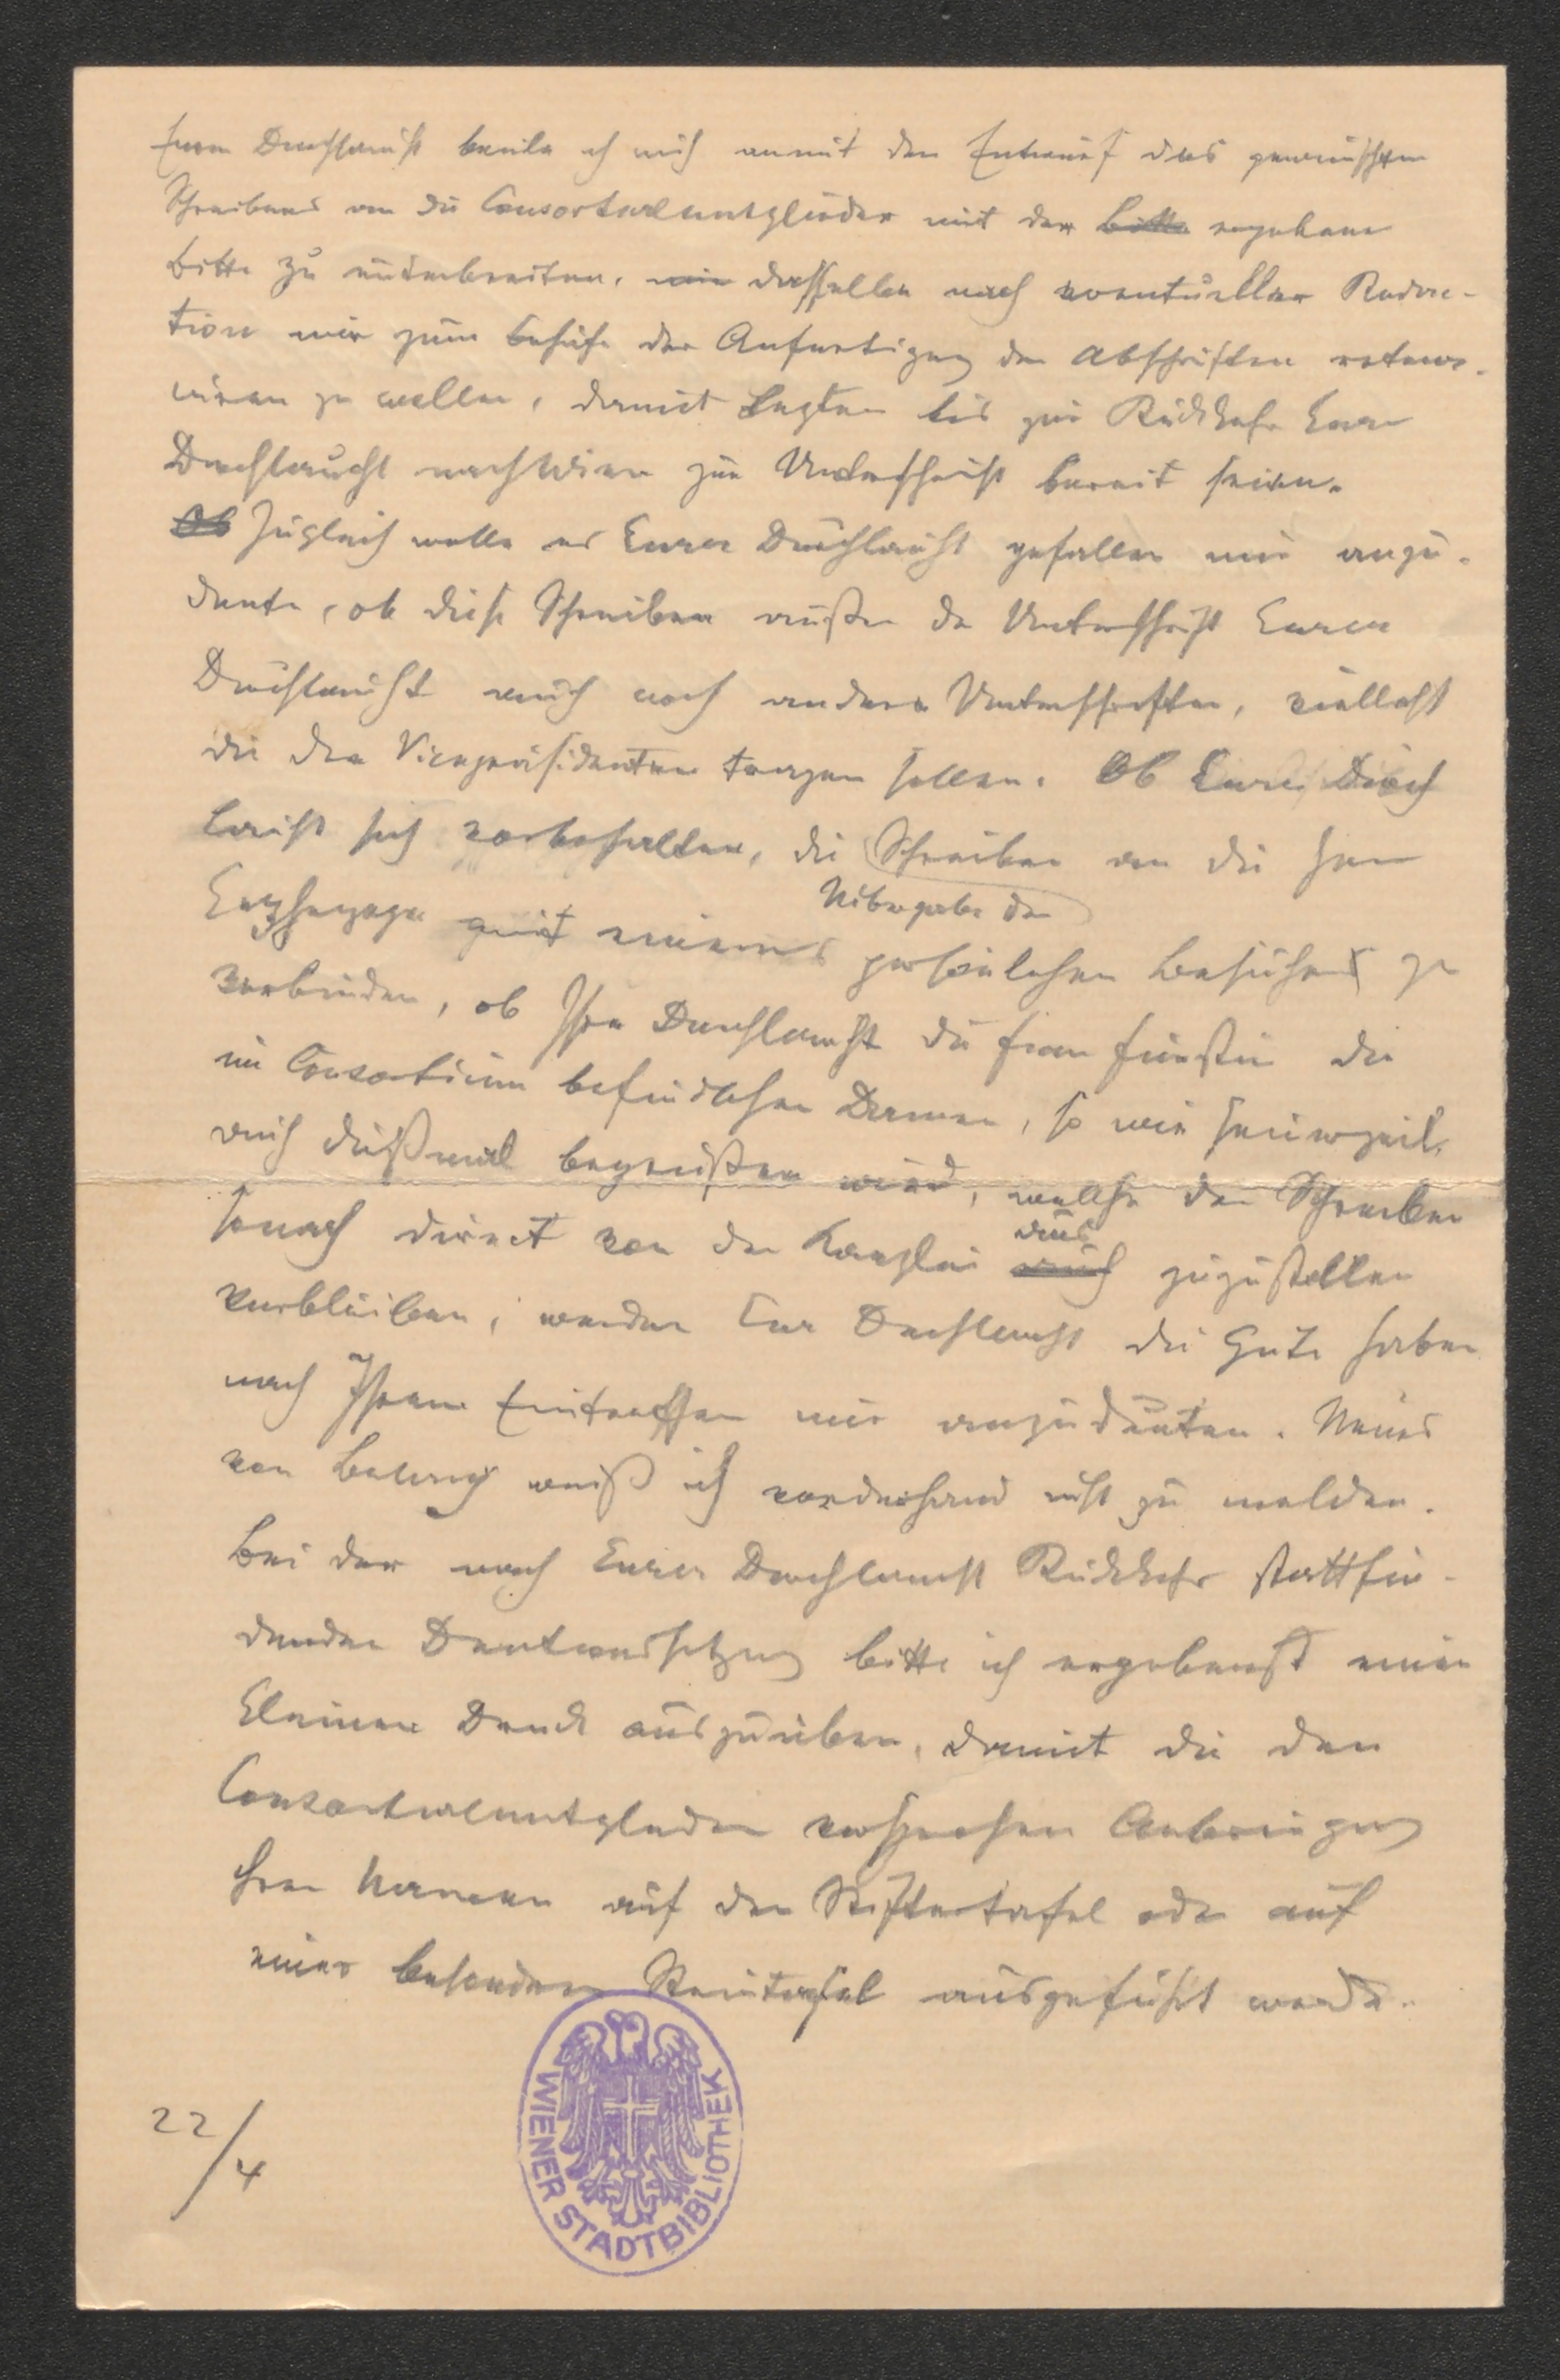 Euer Durchlaucht beeile ich mich anmit den Entwurf des gewünschten
Schreibens an die Consortialmitglieder mit der Bitte ergebenen
Bitte zu unterbreiten, mir dasselbe nach eventueller Redac-
tion mir zum Behufe der Anfertigung der Abschriften retour-
niren zu wollen, damit Letztere bis zur Rückkehr Euer
Durchlaucht nach Wien zur Unterschrift bereit seien.
Ob Zugleich wolle es Eurer Durchlaucht gefallen mir anzu-
deuten, ob diese Schreiben außer der Unterschrift Eurer
Durchlaucht auch noch andere Unterschriften, vielleicht
die der Vicepräsidenten tragen sollen. Ob Eure Durch
laucht sich vorbehalten, die Schreiben an die Herren
Uibergabe der
Erzherzoge mit einem persönlichen Besuche zu
verbinden, ob Ihre Durchlaucht die Frau Fürstin die
im Consortium befindlichen Damen, so wie seinerzeit,
auch dießmal begrüßen wird, welche der Schreiben
sonach direct von der Kanzlei auch
aus
zuzustellen
verbleiben, werden Euer Durchlaucht die Güte haben
nach Ihrem Eintreffen mir anzudeuten. Neues
von Belang weiß ich vorderhand nicht zu melden.
Bei der nach Eurer Durchlaucht Rückkehr stattfin-
denden Denkmalsitzung bitte ich ergebenst einen
kleinen Druck auszuüben, damit die den
Consortialmitgliedern versprochene Anbringung
ihrer Namen auf der Stiftertafel oder auf
einer besonderen Steintafel ausgeführt werde.
22/4
WIENER STADTBIBLIOTHEK